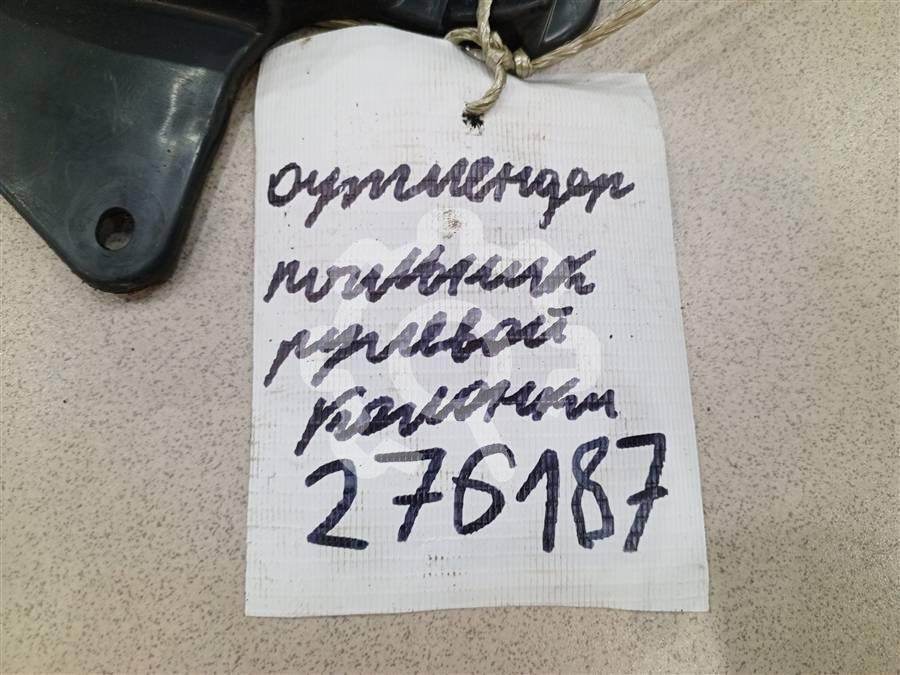 оутлендер
пыльник
рулевой
колонки
276187